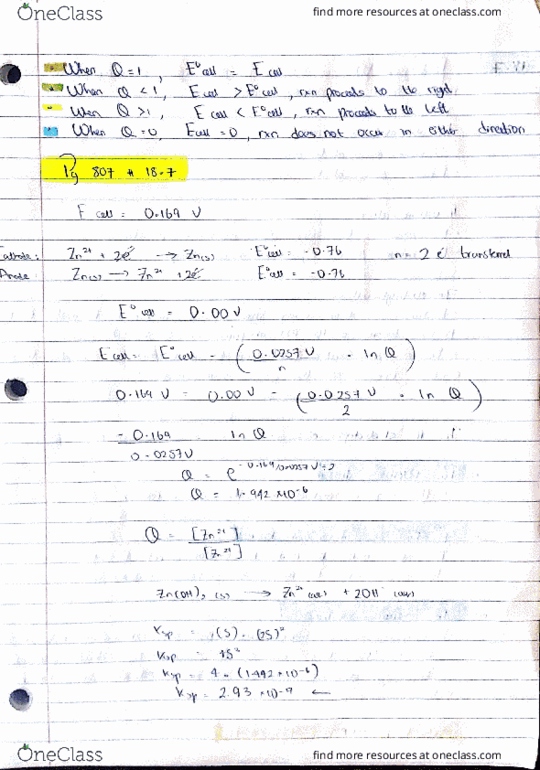 OneClass
find more resources at oneclass.com
When Q = 1, E°cell = E cell
When Q < 1, Ecell > E°cell, rxn proceeds to the right
When Q > 1, Ecell < E°cell, rxn proceeds to the left
When Q = 0, Ecell = 0, rxn does not occur in either direction
Pg 807 # 18.7
E cell = 0.169 V
Cathode: Zn²⁺ + 2e⁻ → Zn(s) E°cell = -0.76 n = 2 e⁻ transferred
Anode: Zn(s) → Zn²⁺ + 2e⁻ E°cell = -0.76
E°cell = 0.00 V
Ecell = E°cell - (0.0257 V / n · ln Q)
0.169 V = 0.00 V - (0.0257 V / 2 · ln Q)
-0.169 / 0.0257 V ln Q
Q = e
Q = 1.942 × 10⁻⁶
Q = [Zn²⁺] / [Zn²⁺]
Zn(OH)₂ (s) → Zn²⁺ (aq) + 2OH (aq)
Ksp = (S) · (2S)²
Ksp = 4S³
Ksp = 4
Ksp = 2.93 × 10⁻⁹ ←
OneClass
find more resources at oneclass.com